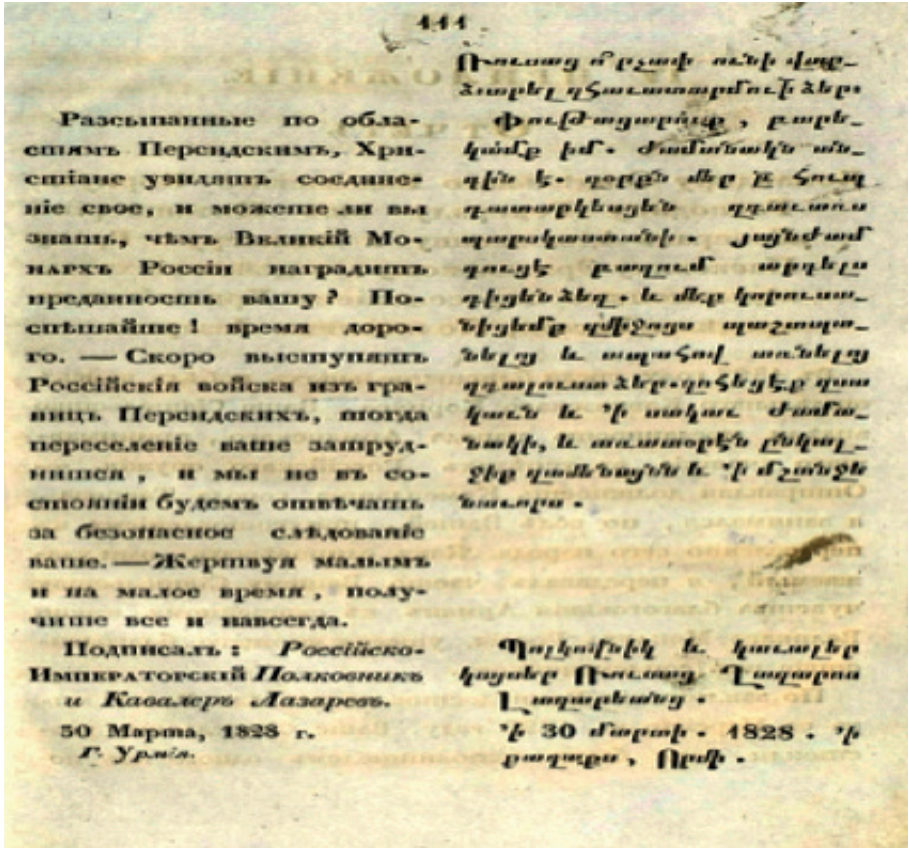 111
Разсыпанные по обла-
стямъ Персидскимъ, Хри-
стіане увидятъ соедине-
ніе свое, и можете ли вы
знать, чѣмъ Великій Мо-
нархъ Россіи наградитъ
преданность вашу? По-
спѣшайте! время доро-
го. — Скоро выступятъ
Россійскія войска изъ гра-
ницъ Персидскихъ, тогда
переселеніе ваше затруд-
нится, и мы не въ со-
стояніи будемъ отвѣчать
за безопасное слѣдованіе
ваше. — Жертвуя малымъ
и на малое время, полу-
чите все и навсегда.
Подписалъ: Россійско-
Императорскій Полковникъ
и Кавалеръ Лазаревъ.
30 Марта, 1828 г.
Г. Урмія.
Ռուսաց ո՛րչափ ունի վար_
ձատրել զհաւատարմուի ձեր։
Փութացարուք, բարե_
կամք իմ. ժամանակն ան_
գին է. զօրքն մեր շ հուպ
դատարկեսցեն զգաւառս
պարսկաստանի. յայնժամ
գուցէ բազում արգելս
դիցեն ձեզ. և մեք կորուսա_
նիցեմք զմիջոցս պաշտպա_
նելոյ և ապահով առնելոյ
զգալուստ ձեր. զոհեցէք զսա
կաւն և ՚ի սակաւ ժամա_
նակի, և առատօրէն ընկալ_
ջիք զամենայնն և ՚ի մշտնջե
նաւորս.
Պոլկովնիկ և կաւալեր
կայսեր Ռուսաց Ղազարոս
Լազարեանց.
՚ի 30 մարտի. 1828. ՚ի
քաղաքս, Որմի.